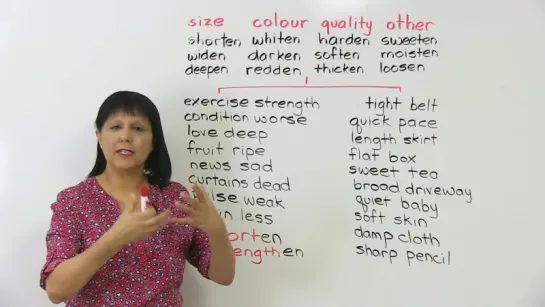 size colour quality other
shorten whiten harden sweeten
widen darken soften moisten
deepen redden thicken loosen
exercise strength
condition worse
love deep
fruit ripe
news sad
curtains dead
weak
less
tight belt
quick pace
length skirt
flat box
sweet tea
broad driveway
quiet baby
soft skin
damp cloth
sharp pencil